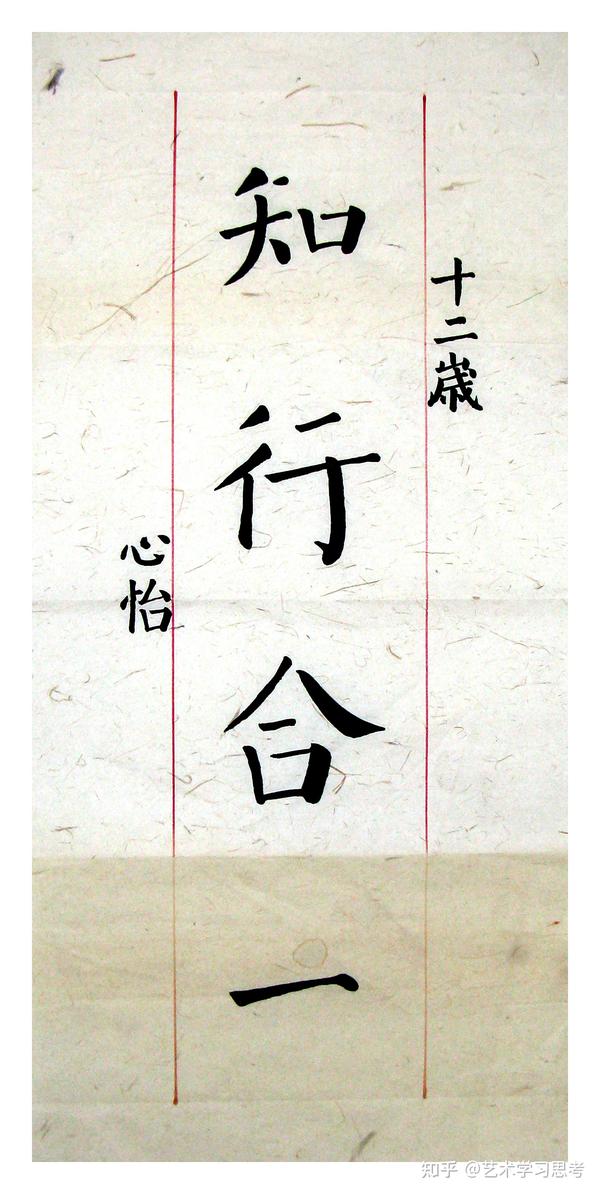 十二歲
知行合一
心怡
知乎 @艺术学习思考